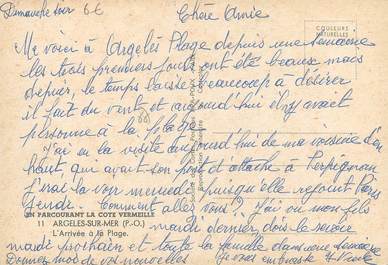 Dimanche soir 6h
Chère Amie
COULEURS
NATURELLES
Me voici à Argelès Plage depuis une semaine
les trois premiers jours ont été beaux mais
depuis, le temps laisse beaucoup à désirer
il fait du vent et aujourd'hui il n'y avait
personne à la plage
J'ai eu la visite aujourd'hui de ma voisine d'en
haut qui avait son port d'attache à Perpignan
J'irai la voir mercredi puisqu'elle rejoint Paris
jeudi. Comment allez vous? J'ai vu mon fils
EN PARCOURANT LA COTE VERMEILLE
11 ARGELES-SUR-MER (P.-O.)
L'Arrivée à la Plage.
mardi dernier, dois le revoir
mardi prochain et toute la famille dans une semaine
Donnez moi de vos nouvelles Je vous embrasse